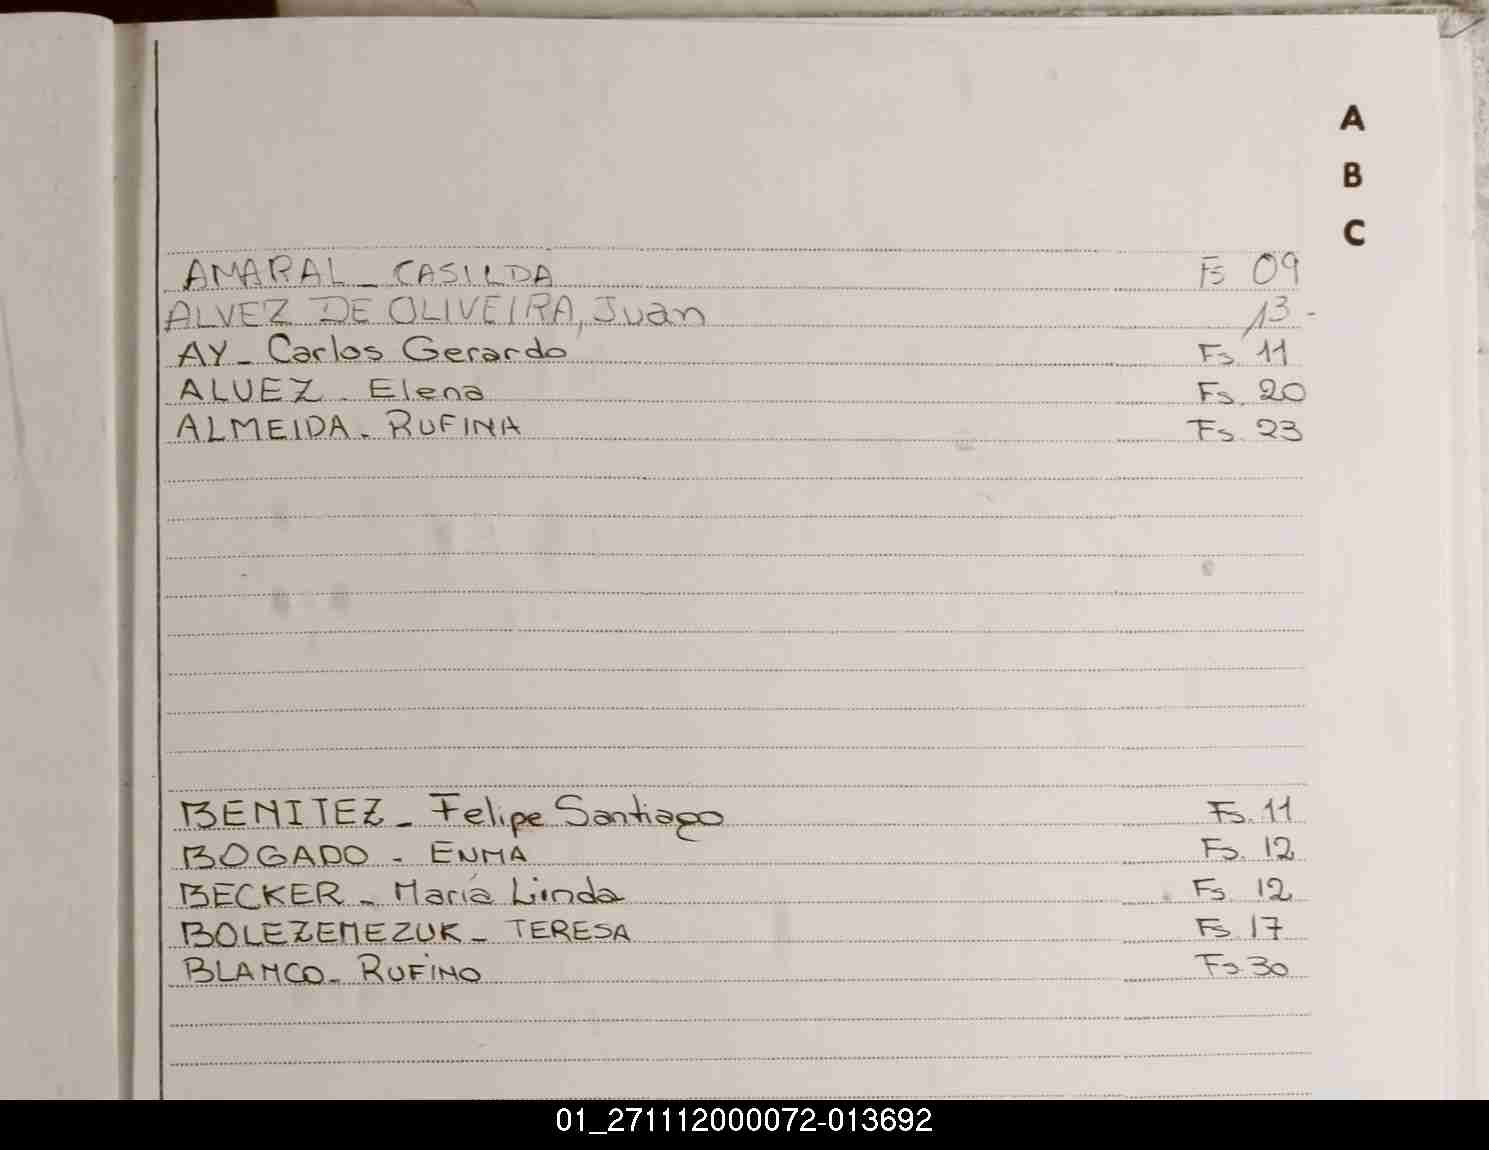 A
B
C
AMARAL - CASILDA Fs 09
ALVEZ DE OLIVEIRA, Juan 13-
AY - Carlos Gerardo Fs. 11
ALVEZ - Elena Fs. 20
ALMEIDA - RUFINA Fs. 23
BENITEZ - Felipe Santiago Fs. 11
BOGADO - ENMA Fs. 12
BECKER - María Linda Fs. 12
BOLEZEMEZUK - TERESA Fs. 17
BLANCO - RUFINO Fs 30
01_271112000072-013692